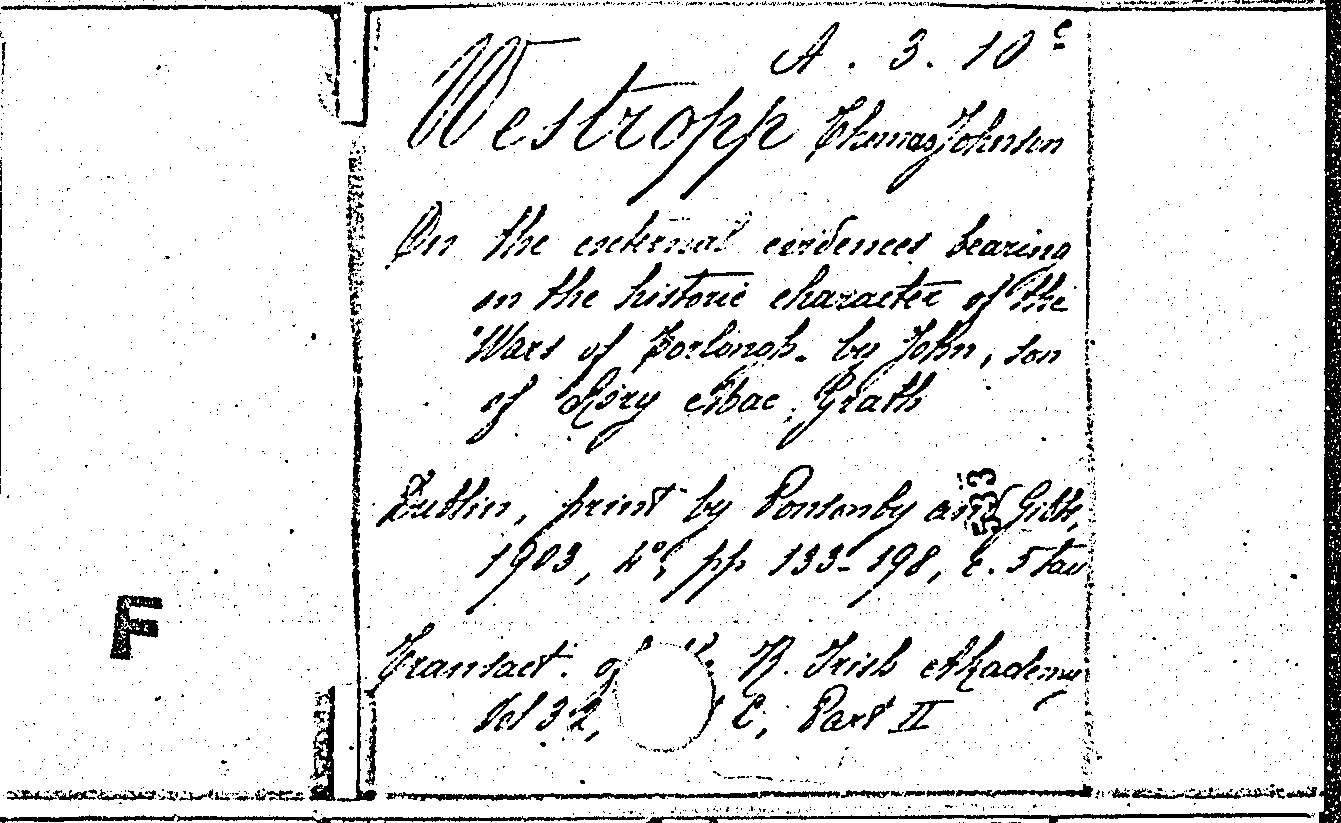 A. 3. 10 c
Westropp Thomas Johnson
On the external evidences bearing
on the historic character of the
"Wars of Torlough" by John, son
of Rory Mac Grath
533
Dublin, print by Ponsonby and Gibbs,
1903, 4°, pp 133-198, c. 5 tav
F
Transact. of the R. Irish Akademy
Vol 32, C, Part II